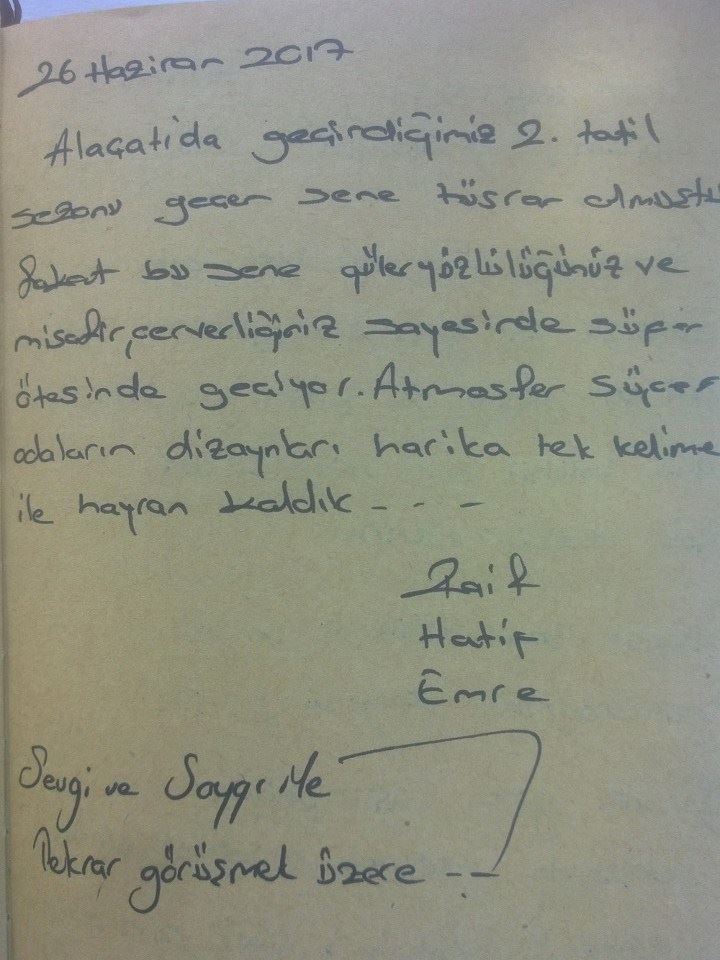 26 Haziran 2017
Alaçatı'da geçirdiğimiz 2. tatil
sezonu geçen sene hüsran olmuştu
fakat bu sene güleryüzlülüğünüz ve
misafirperverliğiniz sayesinde süper
ötesinde geçiyor. Atmosfer süper
odaların dizaynları harika tek kelime
ile hayran kaldık - - -
Raif
Hatip
Emre
Sevgi ve Saygı ile
Tekrar görüşmek üzere --